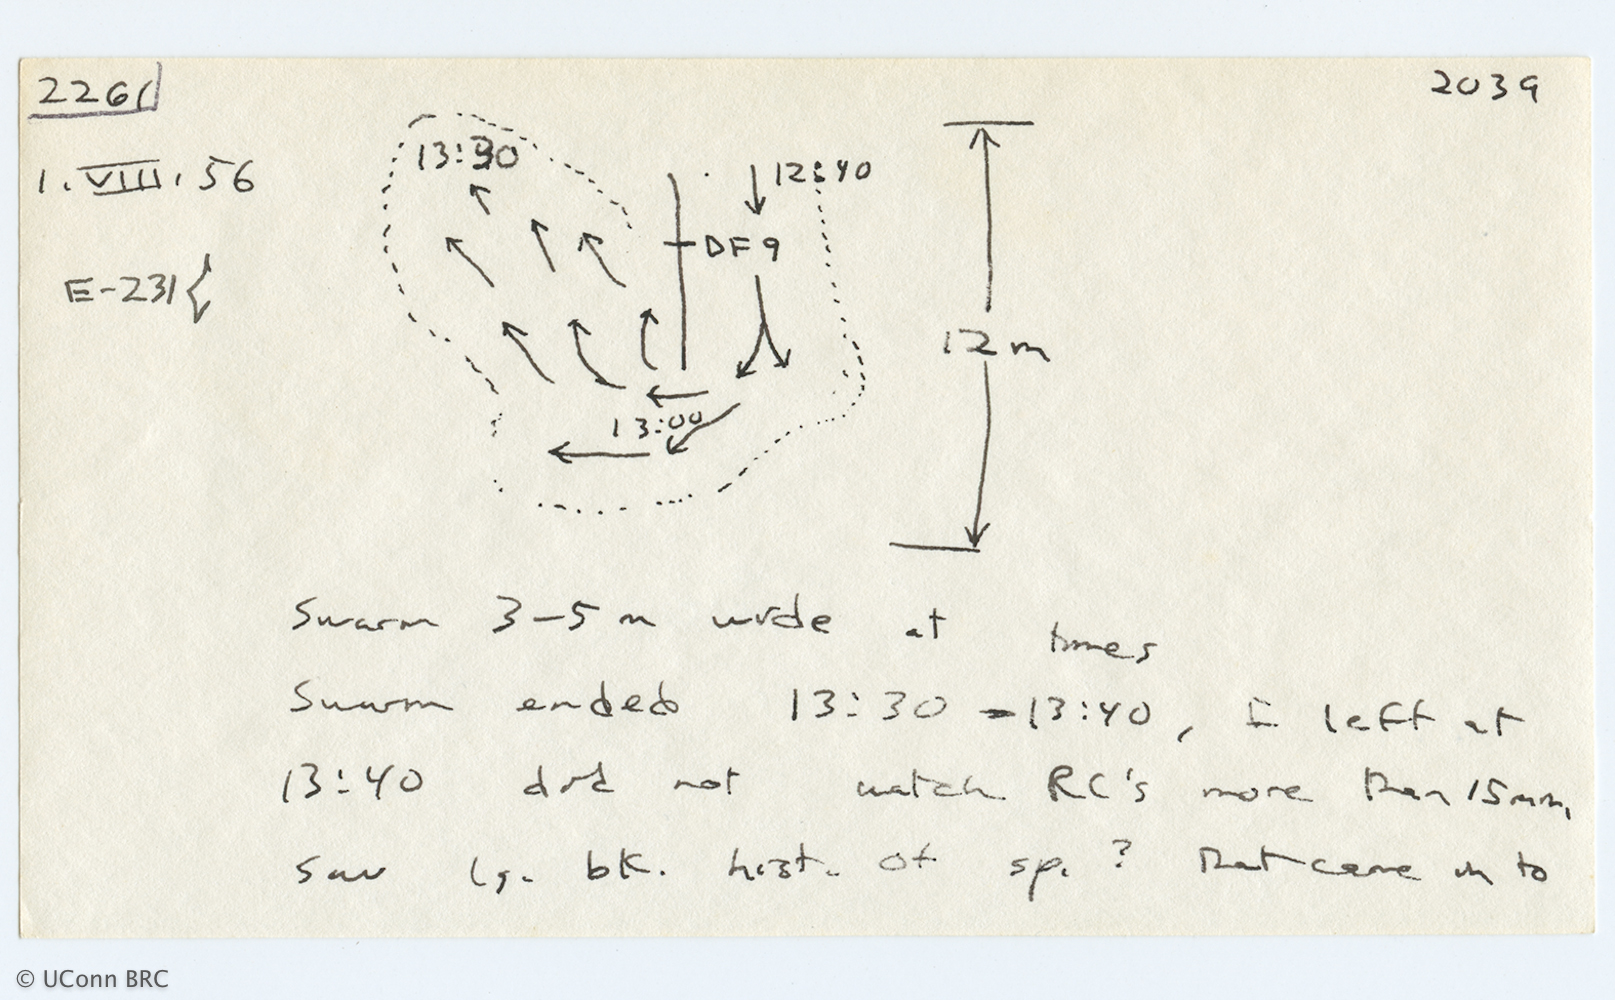 2261
2039
1.VIII.56
13:30
12:40
DF9
E-231{
12 m
13:00
Swarm 3-5 m wide at times
Swarm ended 13:30 - 13:40, I left at
13:40 did not watch RC's more than 15 min,
saw lg. bk. hist. of sp. ? that came in to
© UConn BRC